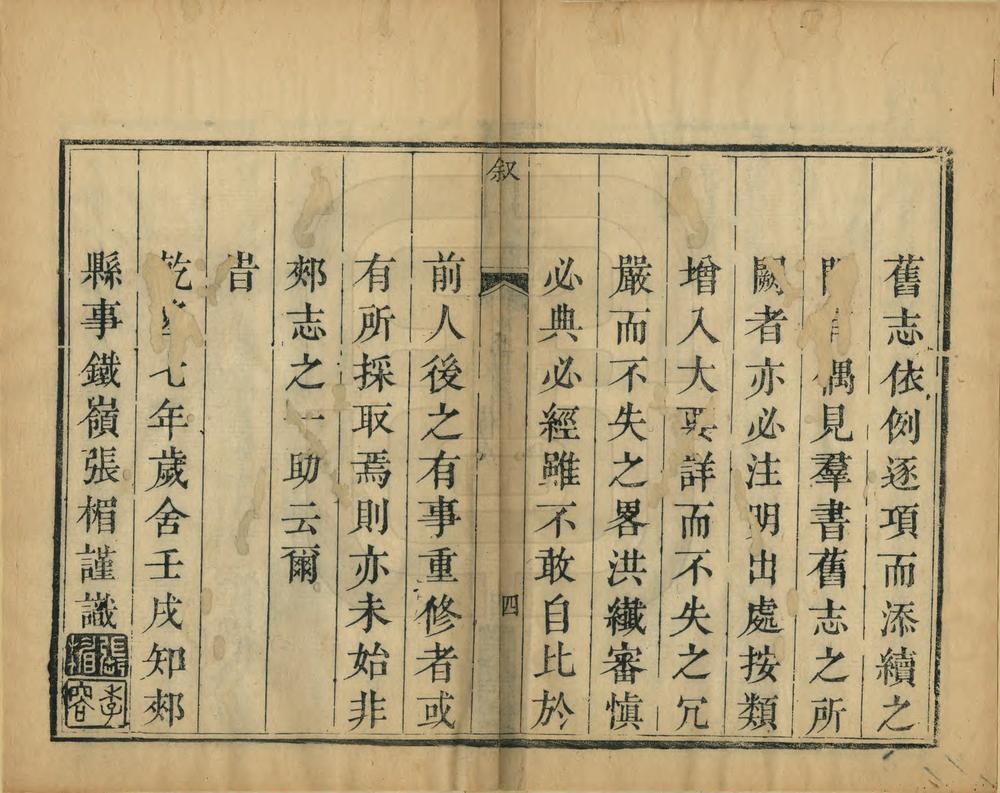 舊志依例逐項而添續之
偶見羣書舊志之所
闕者亦必注明出處按類
增入大要詳而不失之冗
嚴而不失之畧洪纖審愼
必典必經雖不敢自比於
叙
四
前人後之有事重修者或
有所採取焉則亦未始非
郯志之一助云爾
旹
乾 七年歲舍壬戌知郯
縣事鐵嶺張楣謹識
張楣
季容